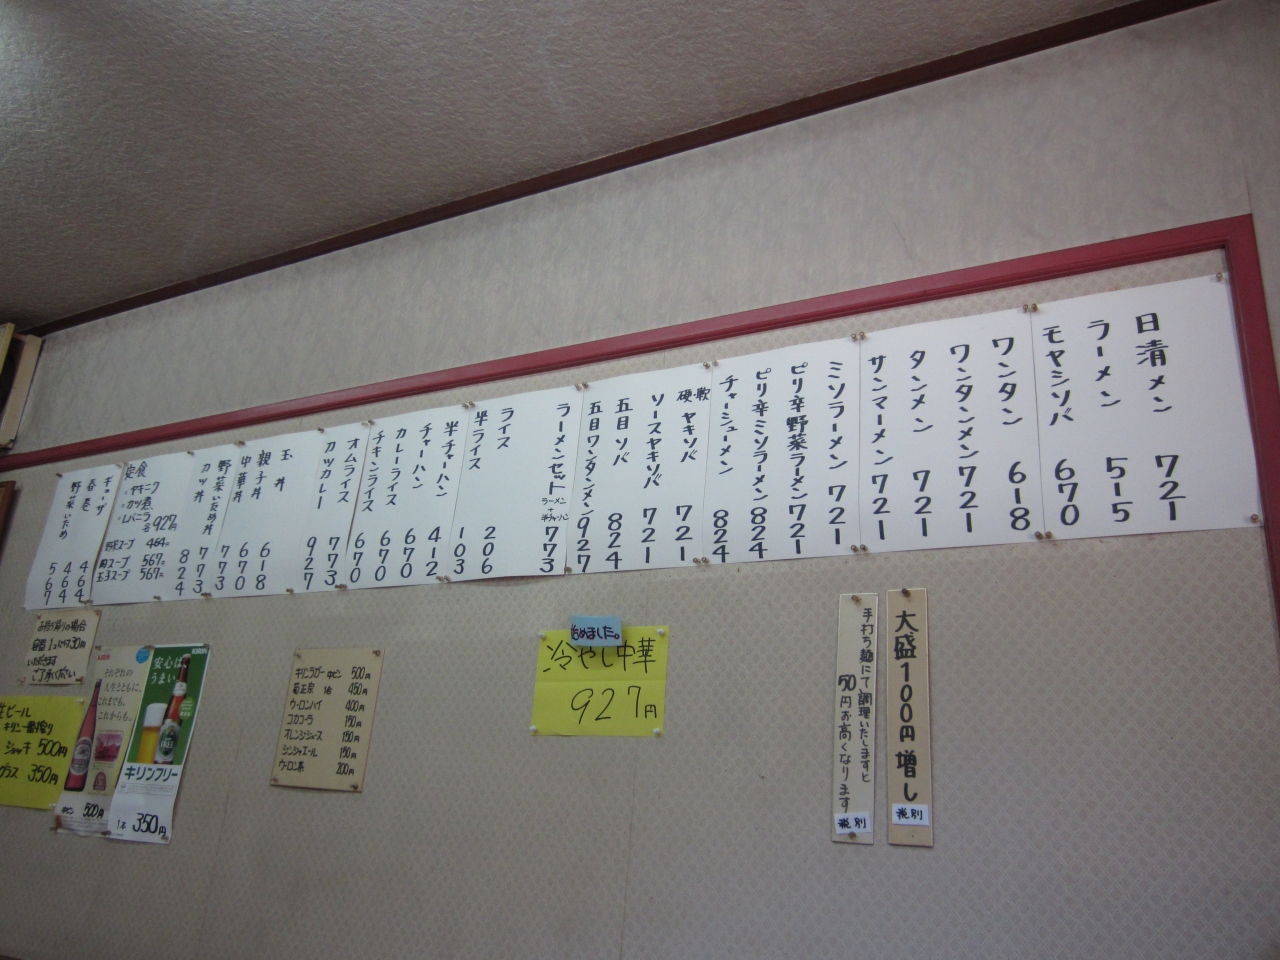 日清メン 721
ラーメン 515
モヤシソバ 670
ワンタン 618
ワンタンメン 721
タンメン 721
サンマーメン 721
ミソラーメン 721
ピリ辛野菜ラーメン 721
ピリ辛ミソラーメン 824
チャーシューメン 824
硬軟ヤキソバ 721
ソースヤキソバ 721
五目ソバ 824
五目ワンタンメン 927
ラーメンセット 773
ラーメン
+
半チャーハン
ライス 206
半ライス 103
半チャーハン 412
チャーハン 670
カレーライス 670
チキンライス 670
オムライス 773
カツカレー 927
玉丼 618
親子丼 670
中華丼 773
野菜いため丼 773
カツ丼 824
定食
・ヤキニク
・カツ煮
・レバニラ
各927円
野菜スープ 464円
肉スープ 567円
玉子スープ 567円
ギョーザ 464
春巻 464
野菜いため 567
大盛100円増し
税別
手打ち麺にて調理いたしますと
50円お高くなります
税別
始めました。
冷やし中華
927円
キリンラガー 中ビン 500円
菊正宗 1合 450円
ウーロンハイ 400円
コカコーラ 150円
オレンジジュース 150円
ジンジャエール 150円
ウーロン茶 200円
お持ち帰りの場合
容器1コにつき30円
いただきます
ご了承ください
KIRIN
安心は
うまい
キリンフリー
1本 350円
KIRIN
それぞれの
人生とともに。
これまでも、
これからも。
中ビン 500円
生ビール
キリン一番搾り
ジョッキ 500円
グラス 350円